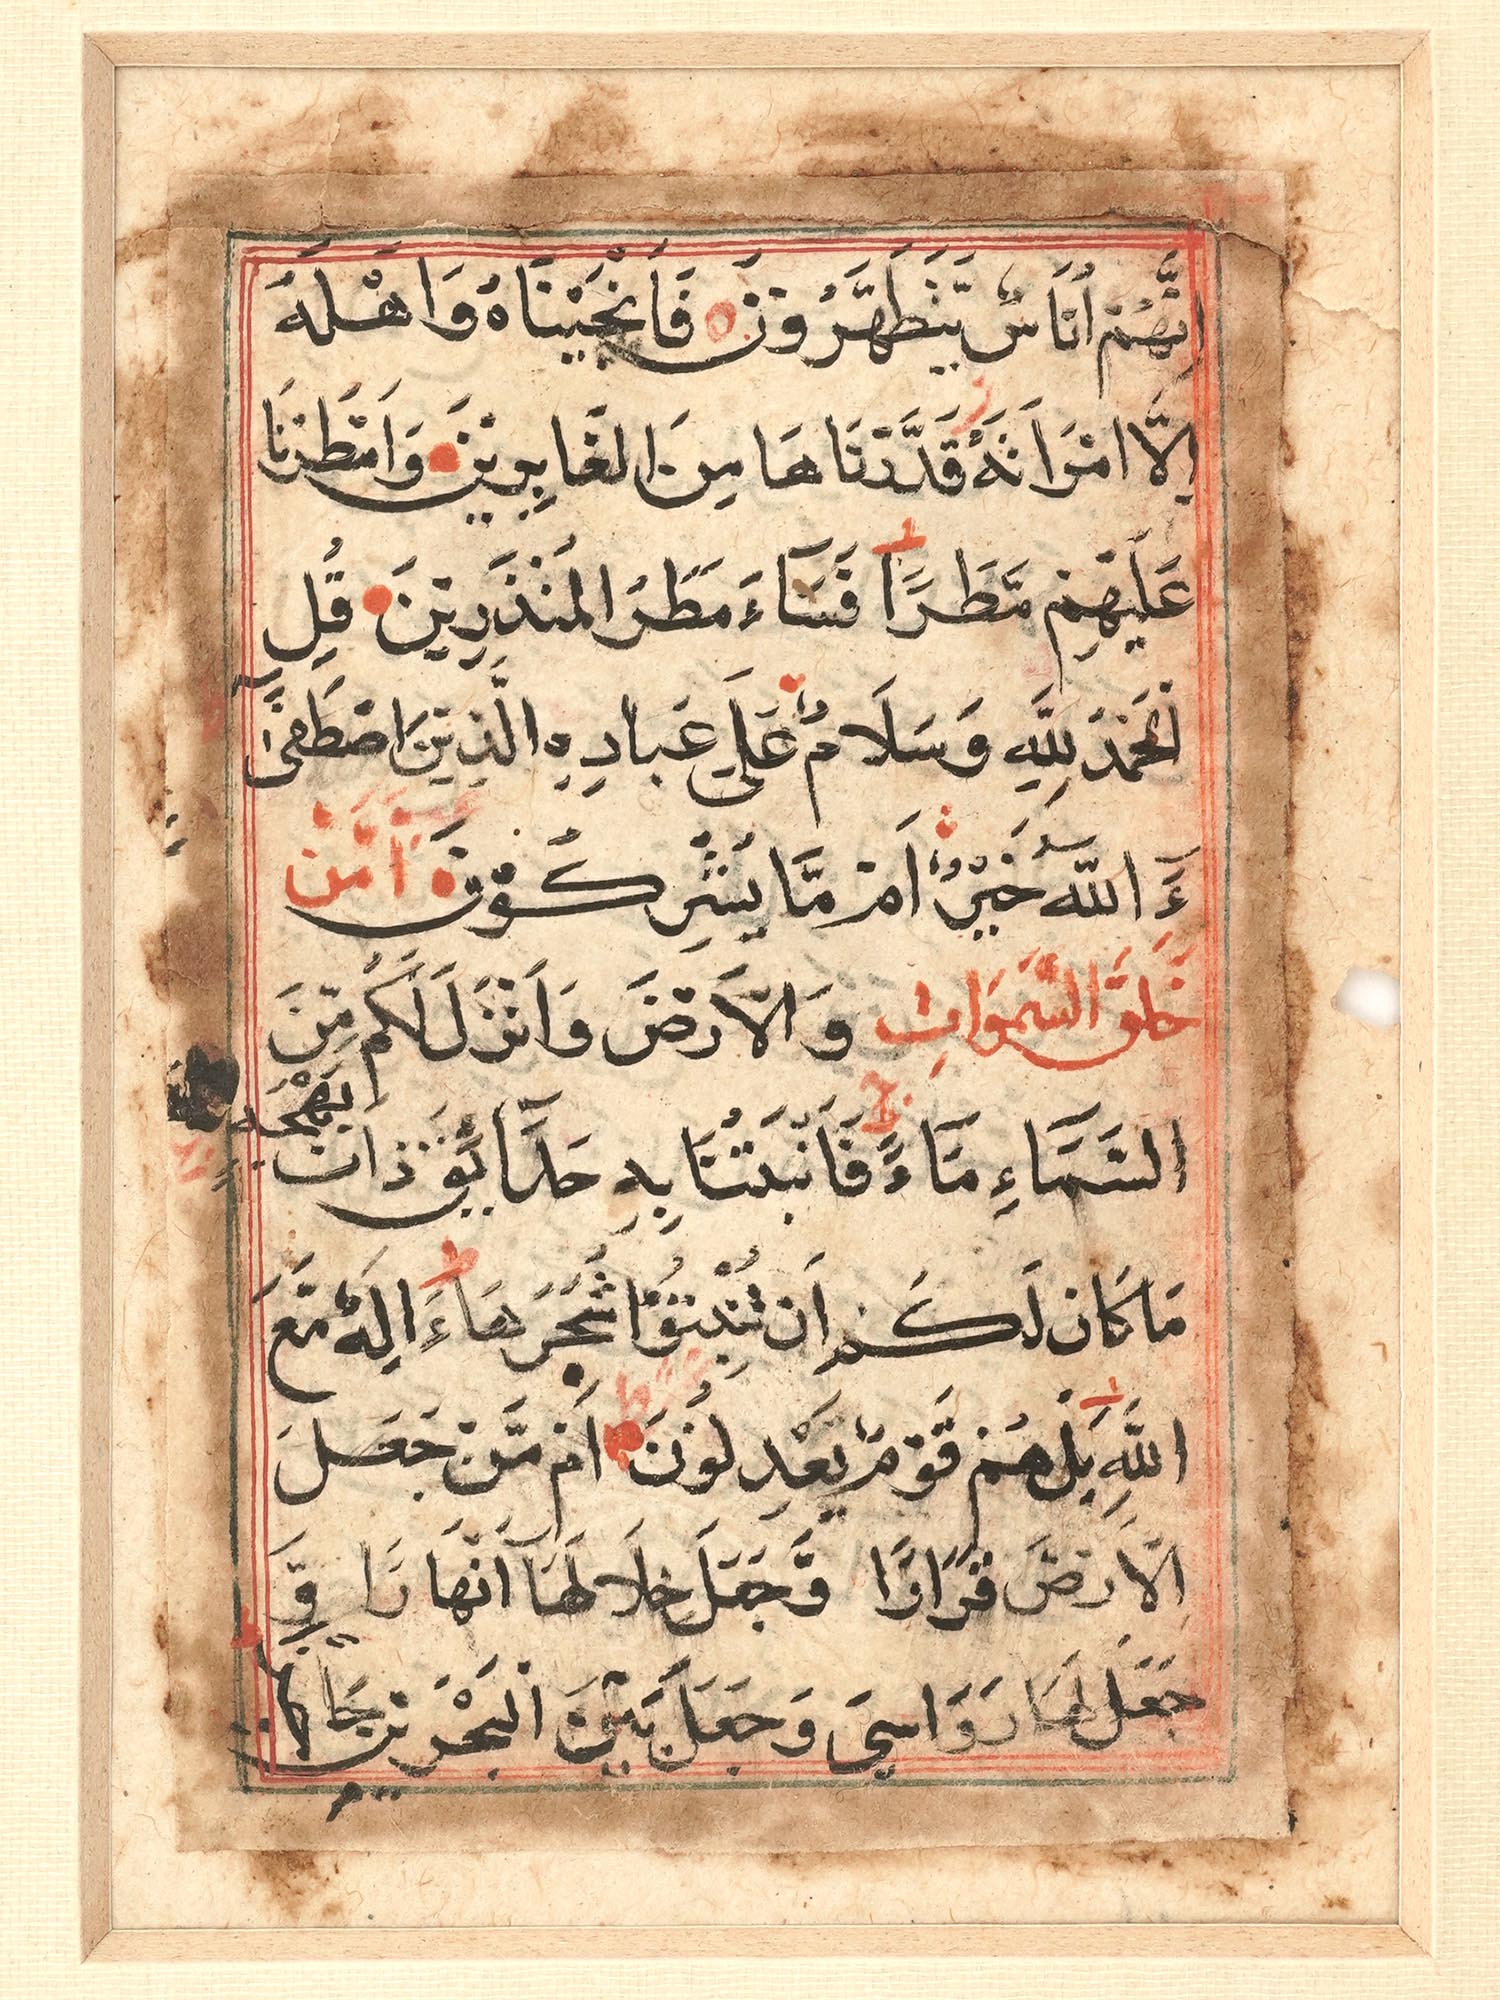 اِنَّهُمْ اُنَاسٌ يَّتَطَهَّرُوْنَ فَاَنْجَيْنَاهُ وَاَهْلَهُ
اِلَّا امْرَاَتَهُ قَدَّرْنَاهَا مِنَ الْغَابِرِيْنَ وَاَمْطَرْنَا
عَلَيْهِمْ مَّطَرًا فَسَآءَ مَطَرُ الْمُنْذَرِيْنَ قُلِ
الْحَمْدُ لِلّٰهِ وَسَلَامٌ عَلَى عِبَادِهِ الَّذِيْنَ اصْطَفَىٓ
ءَ اللّٰهُ خَيْرٌ اَمْ مَّا يُشْرِكُوْنَ اَمَّنْ
خَلَقَ السَّمٰوَاتِ وَالْاَرْضَ وَاَنْزَلَ لَكُمْ مِّنَ
السَّمَآءِ مَآءً فَاَنْبَتْنَا بِهِ حَدَآئِقَ ذَاتَ بَهْجَةٍ
مَا كَانَ لَكُمْ اَنْ تُنْبِتُوْا شَجَرَهَا ءَ اِلٰهٌ مَّعَ
اللّٰهِ بَلْ هُمْ قَوْمٌ يَّعْدِلُوْنَ اَمْ مَّنْ جَعَلَ
الْاَرْضَ قَرَارًا وَّجَعَلَ خِلَالَهَآ اَنْهَارًا وَّ
جَعَلَ لَهَا رَوَاسِيَ وَجَعَلَ بَيْنَ الْبَحْرَيْنِ حَاجِزًا